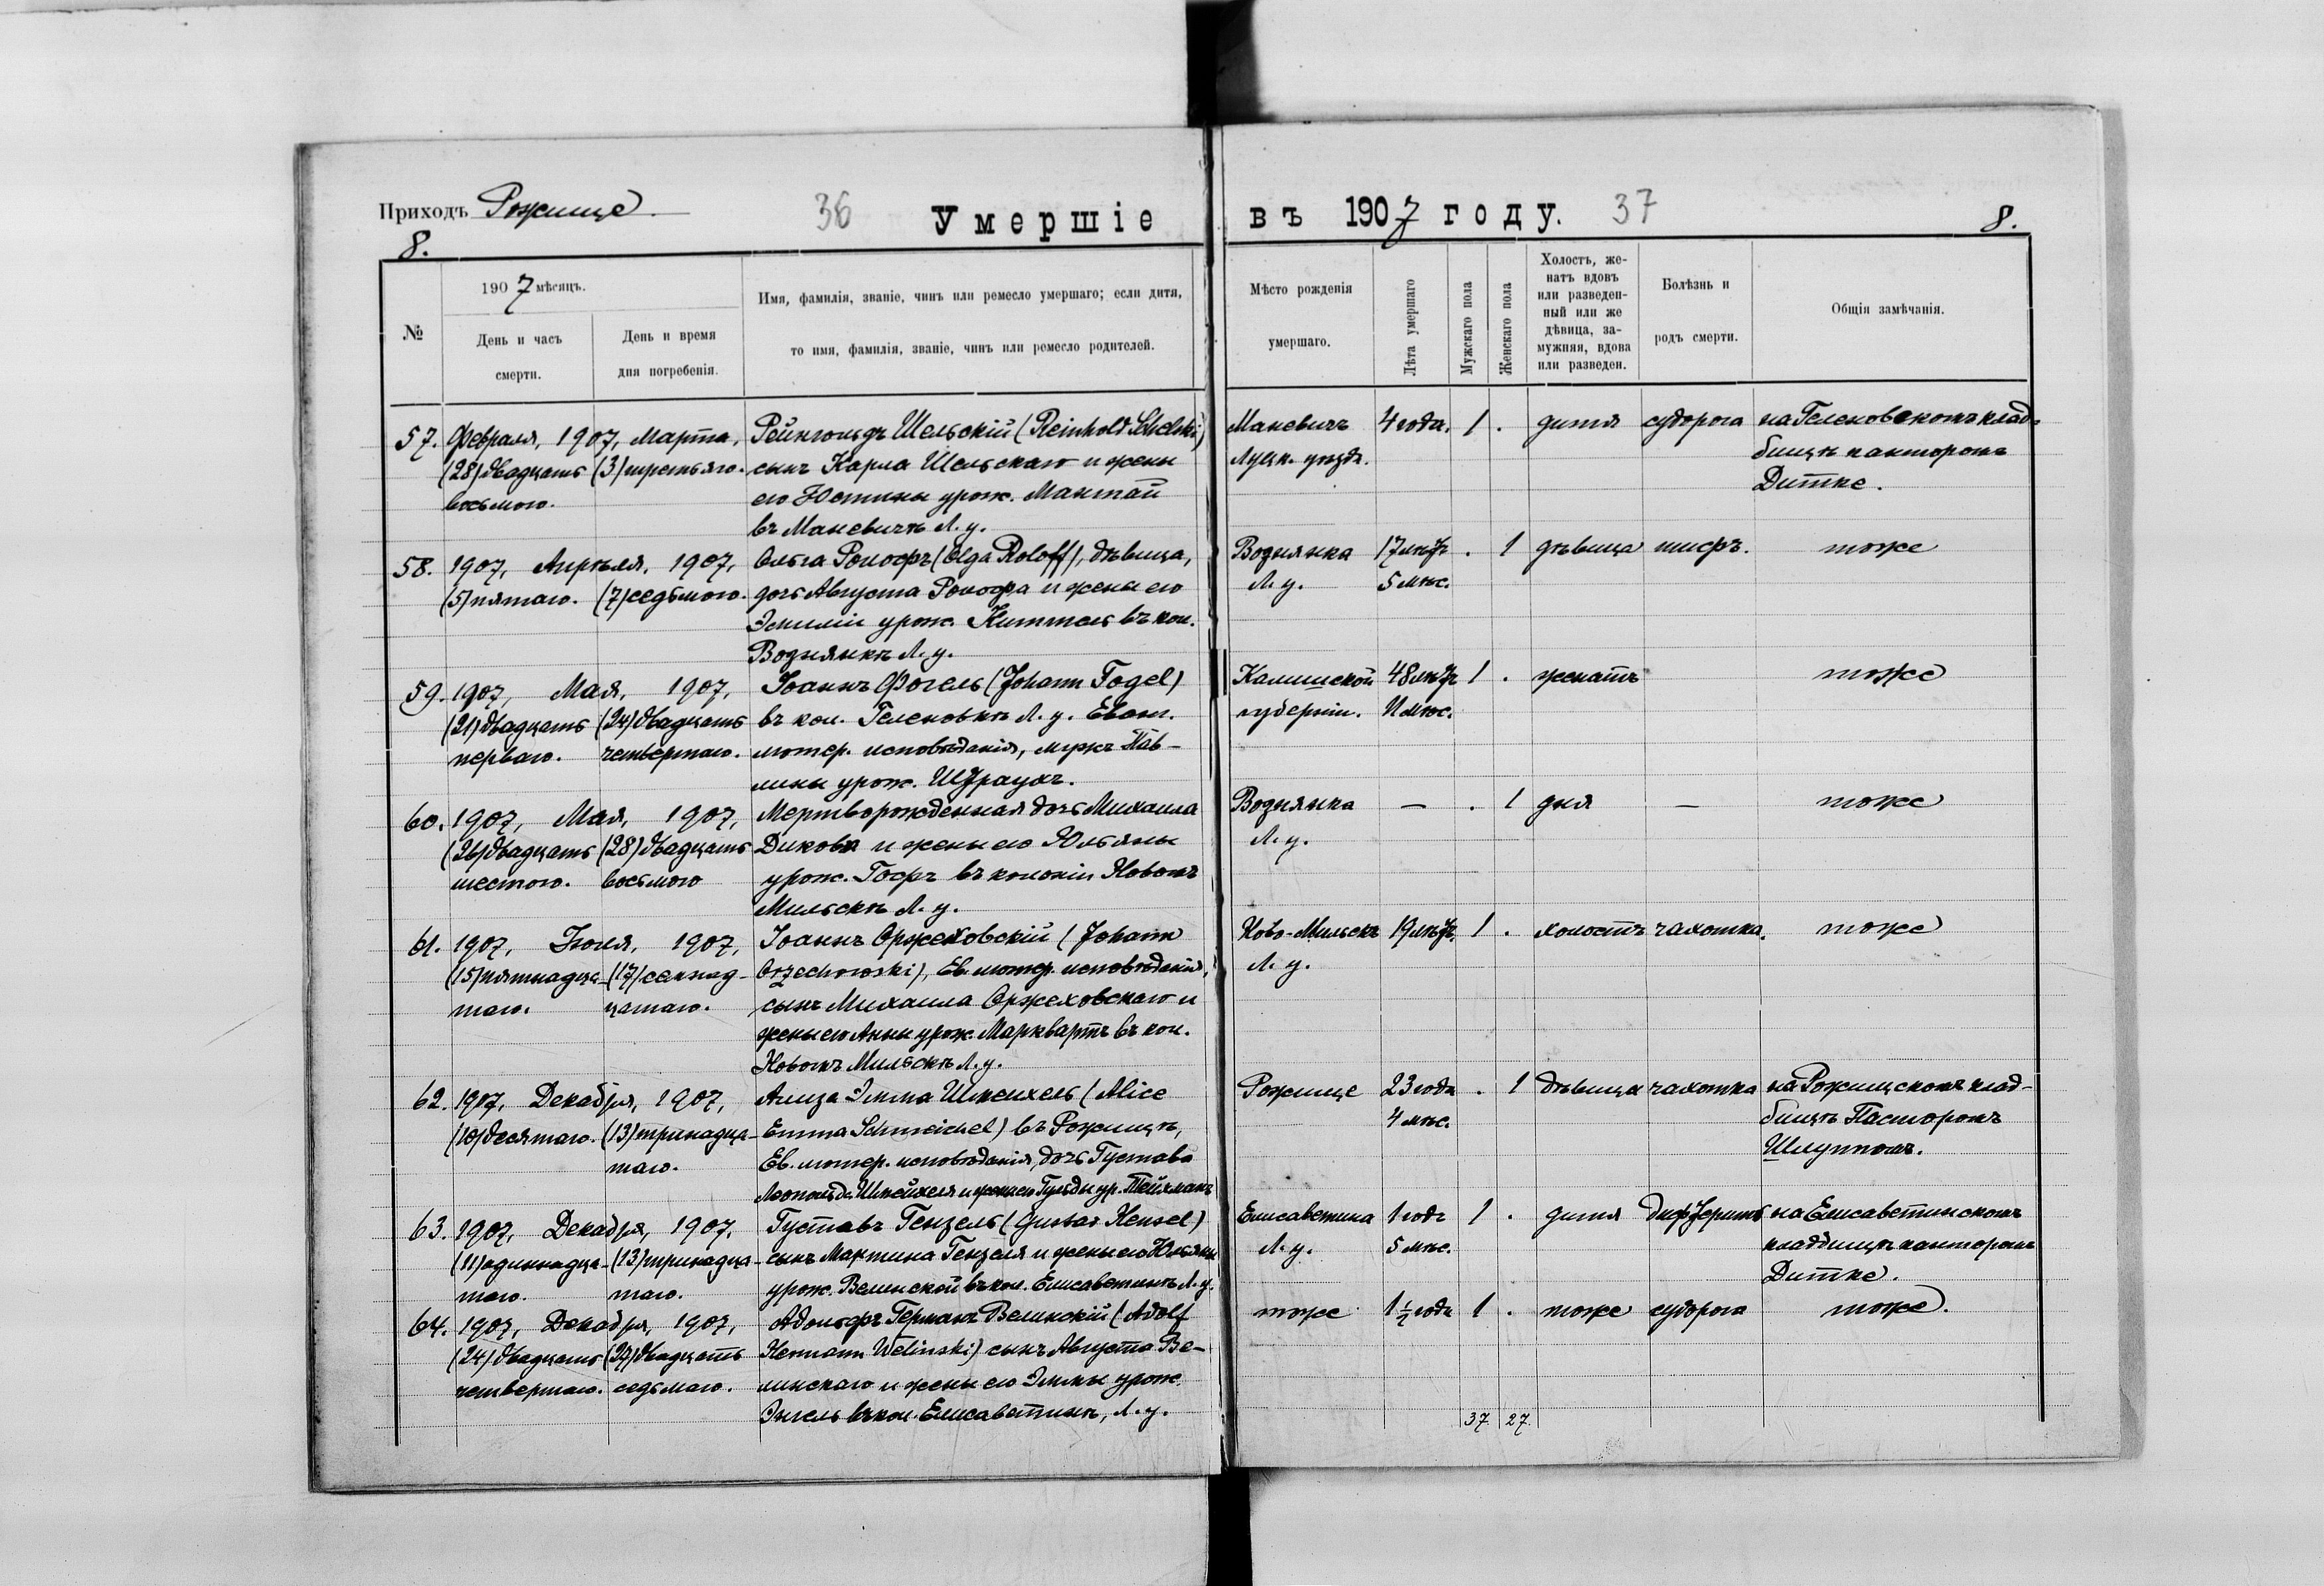 Приходъ Рожище
36
Умершіе
въ 1907 году.
37
8.
8.
№
1907 мѣсяцъ.
День и часъ
смерти.
День и время
дня погребенія.
Имя, фамилія, званіе, чинъ или ремесло умершаго; если дитя,
то имя, фамилія, званіе, чинъ или ремесло родителей.
Мѣсто рожденія
умершаго.
Лѣта умершаго
Мужскаго пола
Женскаго пола
Холостъ, же-
натъ вдовъ
или разведен-
ный или же
дѣвица, за-
мужняя, вдова
или разведен.
Болѣзнь и
родъ смерти.
Общія замѣчанія.
57. Февраля, 1907, Марта, Рейнгольдъ Шельскій (Reinhold Schelski) Маневичъ 4 года. 1 . дитя судорога на Геленовскомъ клад-
(28) двадцать (3) третьяго. сынъ Карла Шельскаго и жены Луцк. уѣзда. бищѣ канторомъ
восьмого. его Юстины урож. Мантай Дитке.
въ Маневичѣ Л. у.
58. 1907, Апрѣля, 1907, Ольга Ролофъ (Olga Roloff), дѣвица, Вознянка 17 лѣтъ . 1 дѣвица тифъ. тоже
(5) пятаго. (7) седьмого. дочь Августа Ролофа и жены его Л. у. 5 мѣс.
Эмиліи урож. Киттель въ кол.
Вознянкѣ Л. у.
59. 1907, Мая, 1907, Іоаннъ Фогель (Johann Fogel) Калишской 48 лѣтъ 1 . женатъ тоже
(21) двадцать (24) двадцать въ кол. Геленовкѣ Л. у. Еванг. губерніи. 11 мѣс.
перваго. четвертаго. лютер. исповѣданія, мужъ Пав-
лины урож. Штраухъ.
60. 1907, Мая, 1907, Мертворожденная дочь Михаила Вознянка — . 1 дня — тоже
(26) двадцать (28) двадцать Дикова и жены его Юльяны Л. у.
шестого. восьмого урож. Гофъ въ колоніи Новомъ
Мильскѣ Л. у.
61. 1907, Іюля, 1907, Іоаннъ Оржеховскій (Johann Ново-Мильскъ 19 лѣтъ. 1 . холостъ чахотка. тоже
(15) пятнадца- (17) семнад- Orzechowski), Ев. лютер. исповѣданія, Л. у.
таго. цатаго. сынъ Михаила Оржеховскаго и
жены его Анны урож. Марквартъ въ кол.
Новомъ Мильскѣ Л. у.
62. 1907, Декабря, 1907, Ализа Эмма Шмейхель (Alice Рожище 23 года . 1 дѣвица чахотка на Рожищскомъ клад-
(10) десятаго. (13) тринадца- Emma Schmeichel) въ Рожищѣ, 4 мѣс. бищѣ Пасторомъ
таго. Ев. лютер. исповѣданія, дочь Густава Шлуппомъ.
Леопольда Шмейхеля и жены его Гульды ур.
63. 1907, Декабря, 1907, Густавъ Гензель (Gustav Hensel) Елисаветина 1 годъ 1 . дитя дифтеритъ на Елисаветинскомъ
(11) одиннадца- (13) тринадца- сынъ Мартина Гензеля и жены его Юльяны Л. у. 5 мѣс. кладбищѣ канторомъ
таго. таго. урож. Велинской въ кол. Елисаветинѣ Л. у. Дитке.
64. 1907, Декабря, 1907, Адольфъ Германъ Велинскій (Adolf тоже 1½ года 1 . тоже судорога тоже.
(24) двадцать (27) двадцать Hermann Welinski) сынъ Августа Ве-
четвертаго. седьмаго. линскаго и жены его Эммы урож.
Энгель въ кол. Елисаветинѣ, Л. у.
37. 27.